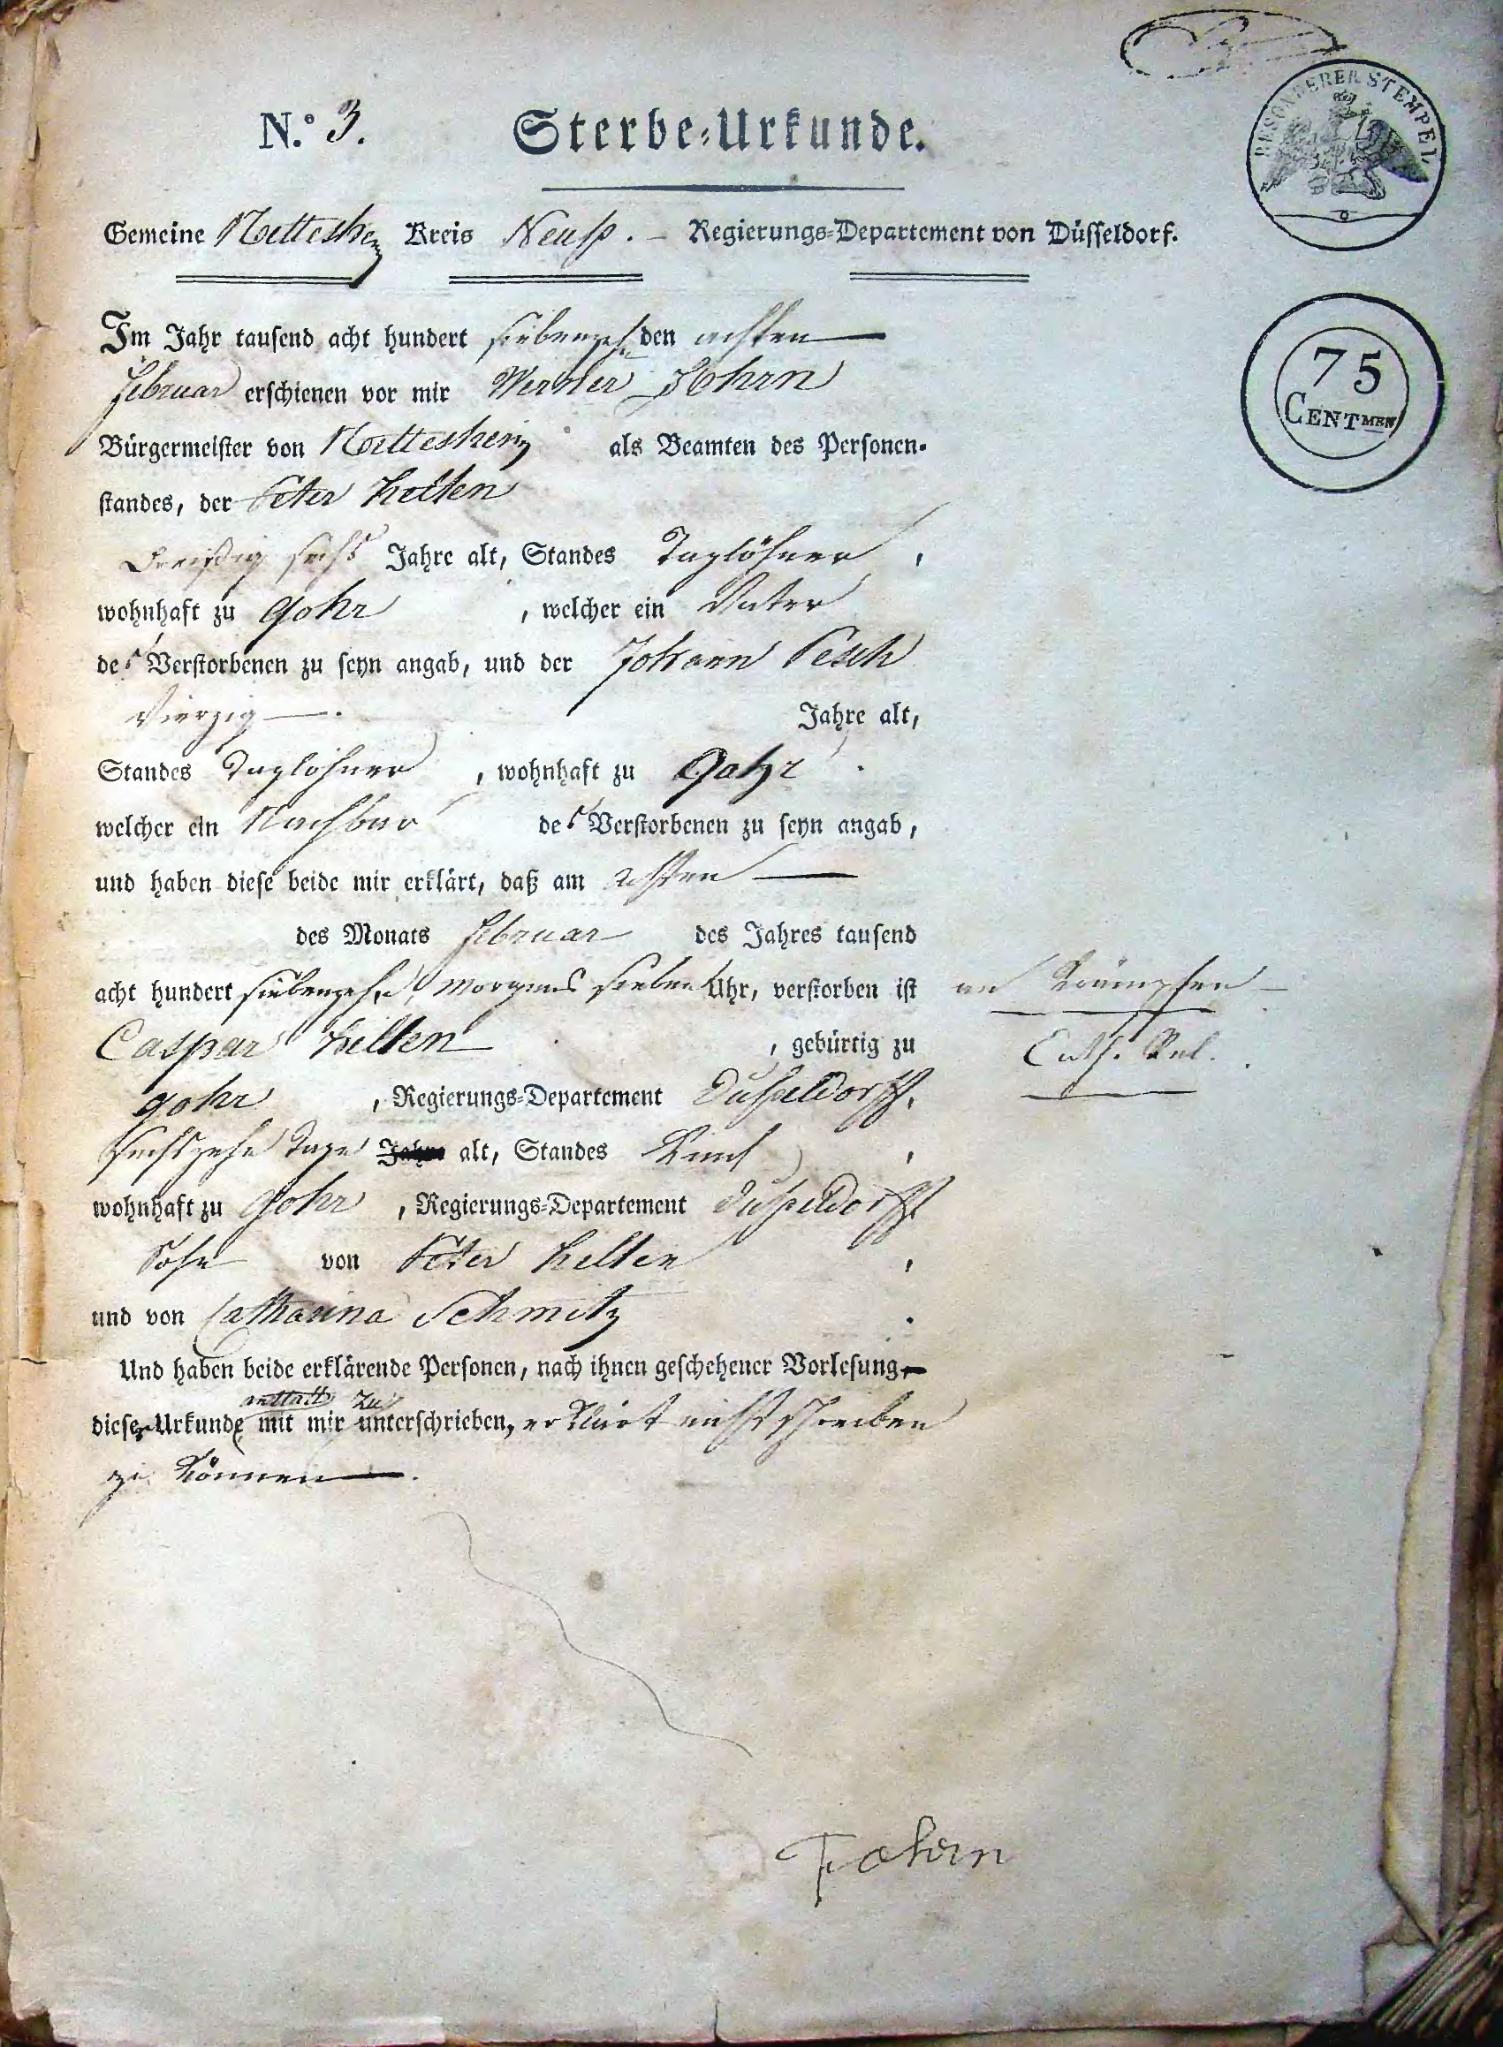 N.º 3. Sterbe-Urkunde.
BESONDERER STEMPEL
Gemeine Nettesheim Kreis Neuß. – Regierungs-Departement von Düsseldorf.
75
CENTMEN
Im Jahr tausend acht hundert siebenzehn den achten
februar erschienen vor mir Werner
Bürgermeister von Nettesheim als Beamten des Personen-
standes, der Peter
Dreißig sechs Jahre alt, Standes Taglöhner,
wohnhaft zu Gohr, welcher ein Vater
des Verstorbenen zu seyn angab, und der Johann Pesch
Vierzig —. Jahre alt,
Standes Taglöhner, wohnhaft zu Gohr.
welcher ein Nachbar des Verstorbenen zu seyn angab,
und haben diese beide mir erklärt, daß am achten —
des Monats februar des Jahres tausend
acht hundert siebenzehn, morgens sieben Uhr, verstorben ist an Krämpfen –
Caspar, gebürtig zu Cath. Rel.
gohr, Regierungs-Departement Dußeldorff,
sechszehn Tage Jahre alt, Standes Kind,
wohnhaft zu Gohr, Regierungs-Departement Dußeldorff
Sohn von Peter,
und von Catharina Schmitz.
Und haben beide erklärende Personen, nach ihnen geschehener Vorlesung –
anstatt zu
dieser Urkunde mit mir unterschrieben, erklärt nicht schreiben
zu können —.